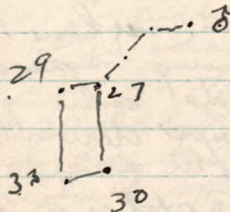 29
27
33
30